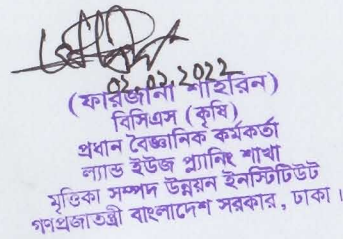 02.02.2022
(ফারজানা শাহরিন)
বিসিএস (কৃষি)
প্রধান বৈজ্ঞানিক কর্মকর্তা
ল্যান্ড ইউজ প্ল্যানিং শাখা
মৃত্তিকা সম্পদ উন্নয়ন ইনস্টিটিউট
গণপ্রজাতন্ত্রী বাংলাদেশ সরকার, ঢাকা।